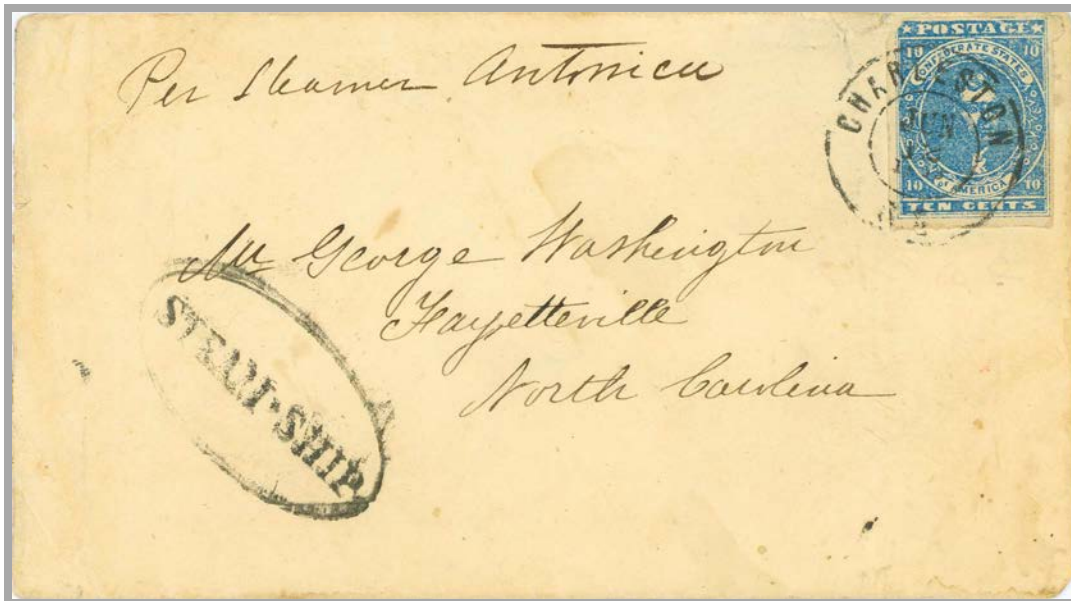 Per Steamer Antonica
★POSTAGE★
10 CONFEDERATE STATES 10
10 of AMERICA 10
TEN CENTS
CHARLESTON
JUN
Mr George Washington
Fayetteville
North Carolina
STEAM·SHIP